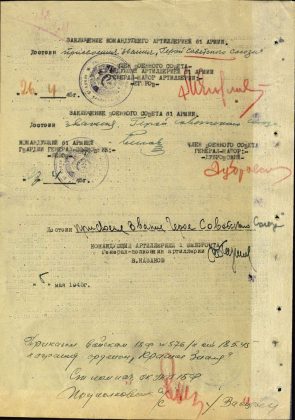 ЗАКЛЮЧЕНИЕ КОМАНДУЮЩЕГО АРТИЛЛЕРИЕЙ 61 АРМИИ
Достоин присвоения звания „Герой Советского Союза"
ЧЛЕН ВОЕННОГО СОВЕТА
КОМАНДУЮЩИЙ АРТИЛЛЕРИЕЙ 61 АРМИИ
ГЕНЕРАЛ-МАЙОР АРТИЛЛЕРИИ
26 4 45г.
ЗАКЛЮЧЕНИЕ ВОЕННОГО СОВЕТА 61 АРМИИ
Достоин звания „Герой Советского Союза
КОМАНДУЮЩИЙ 61 АРМИЕЙ
ГВАРДИИ ГЕНЕРАЛ-ПОЛКОВНИК
ЧЛЕН ВОЕННОГО СОВЕТА
ГЕНЕРАЛ-МАЙОР
ДУБРОВСКИЙ
Достоин присвоения звания Героя Советского Союза
КОМАНДУЮЩИЙ АРТИЛЛЕРИЕЙ 1 БЕЛФРОНТА
Генерал-полковник артиллерии
В. КАЗАКОВ
мая 1945г.
Приказом войскам 1БФ № 576/н от 18.5.45
награжден орденом „Красное Знамя"